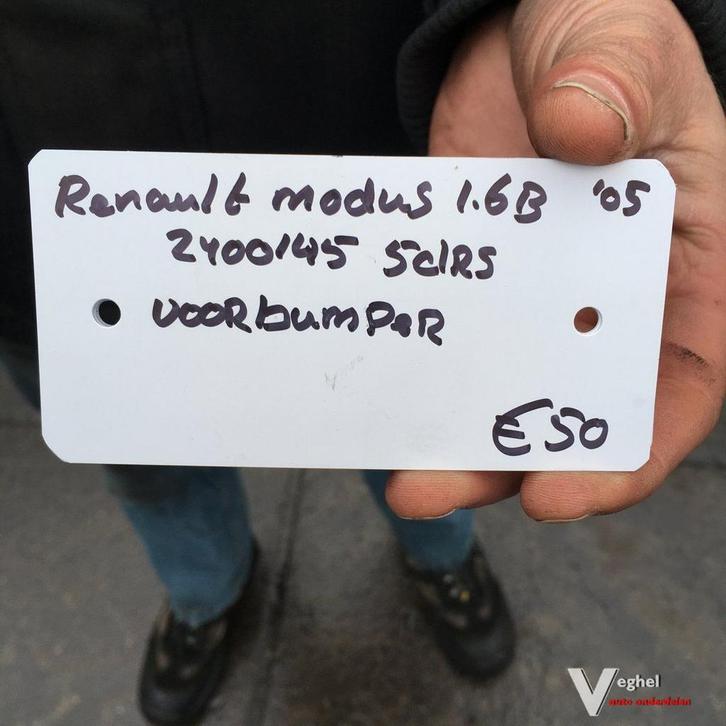 Renault modus 1.6B '05
2400145 5dRS
VOORbumPeR
€50
Veghel
auto onderdelen